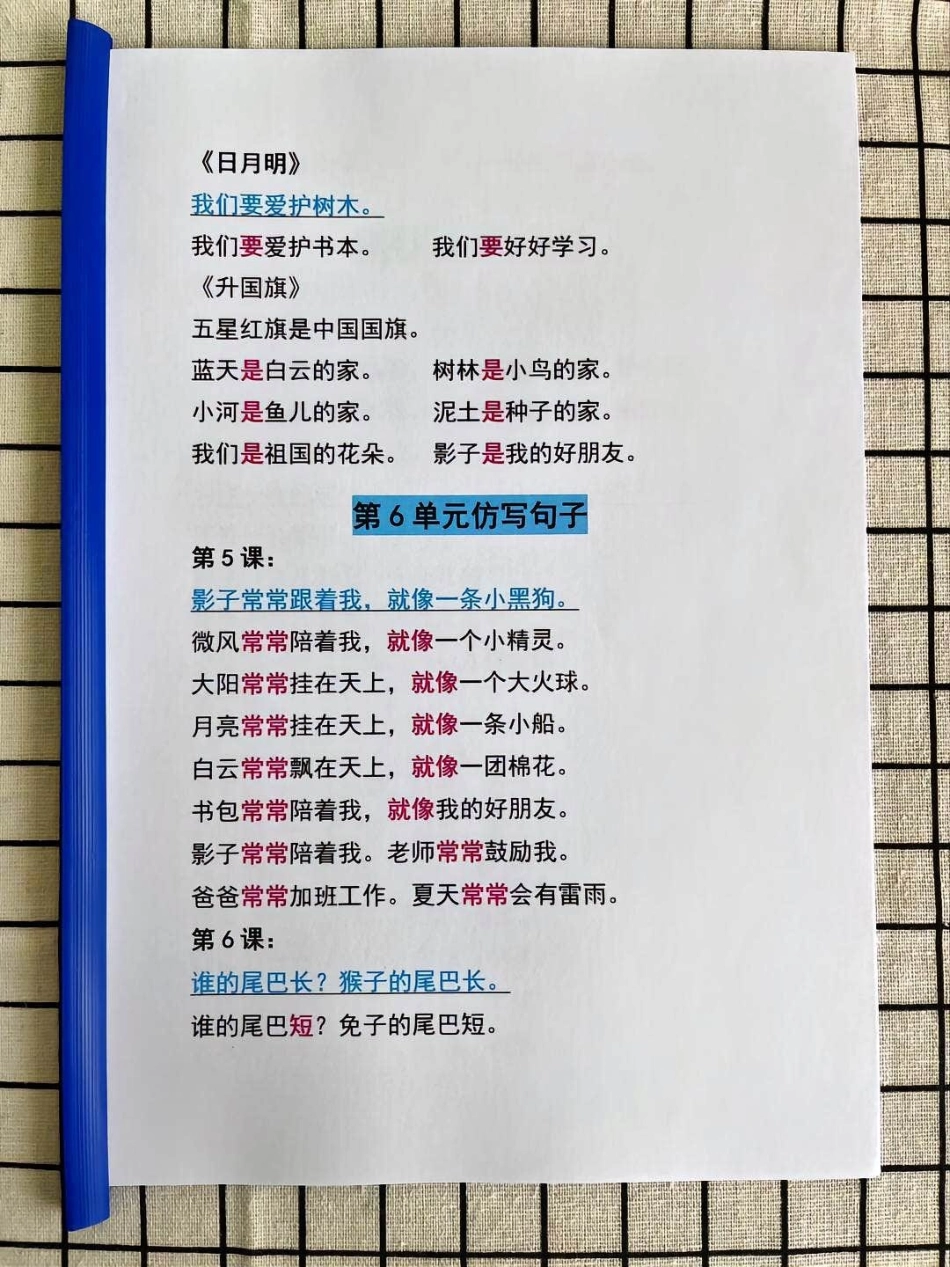 《日月明》
我们要爱护树木。
我们要爱护书本。 我们要好好学习。
《升国旗》
五星红旗是中国国旗。
蓝天是白云的家。 树林是小鸟的家。
小河是鱼儿的家。 泥土是种子的家。
我们是祖国的花朵。 影子是我的好朋友。
第6单元仿写句子
第5课：
影子常常跟着我，就像一条小黑狗。
微风常常陪着我，就像一个小精灵。
大阳常常挂在天上，就像一个大火球。
月亮常常挂在天上，就像一条小船。
白云常常飘在天上，就像一团棉花。
书包常常陪着我，就像我的好朋友。
影子常常陪着我。老师常常鼓励我。
爸爸常常加班工作。夏天常常会有雷雨。
第6课：
谁的尾巴长？猴子的尾巴长。
谁的尾巴短？免子的尾巴短。